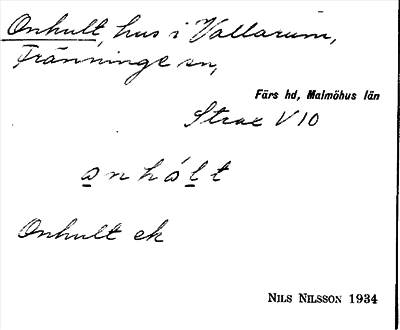 Onhult, hus i Vallarum,
Tränninge sn,
Färs hd, Malmöhus län
Strax V 10
a n h ó l t
Onhult ek
NILS NILSSON 1934